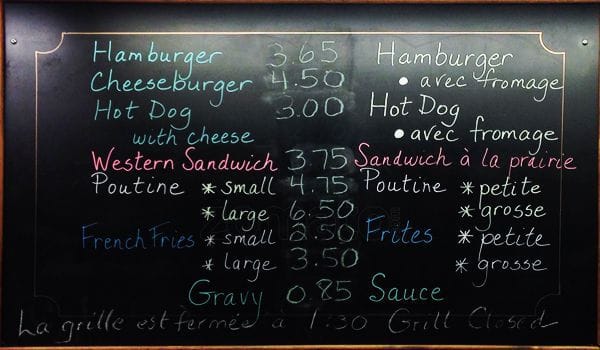 Hamburger 3.65 Hamburger
Cheeseburger 4.50 • avec fromage
Hot Dog 3.00 Hot Dog
with cheese • avec fromage
Western Sandwich 3.75 Sandwich à la prairie
Poutine * small 4.75 Poutine * petite
* large 6.50 * grosse
French Fries * small 2.50 Frites * petite
* large 3.50 * grosse
Gravy 0.85 Sauce
La grille est fermée à 1:30 Grill Closed